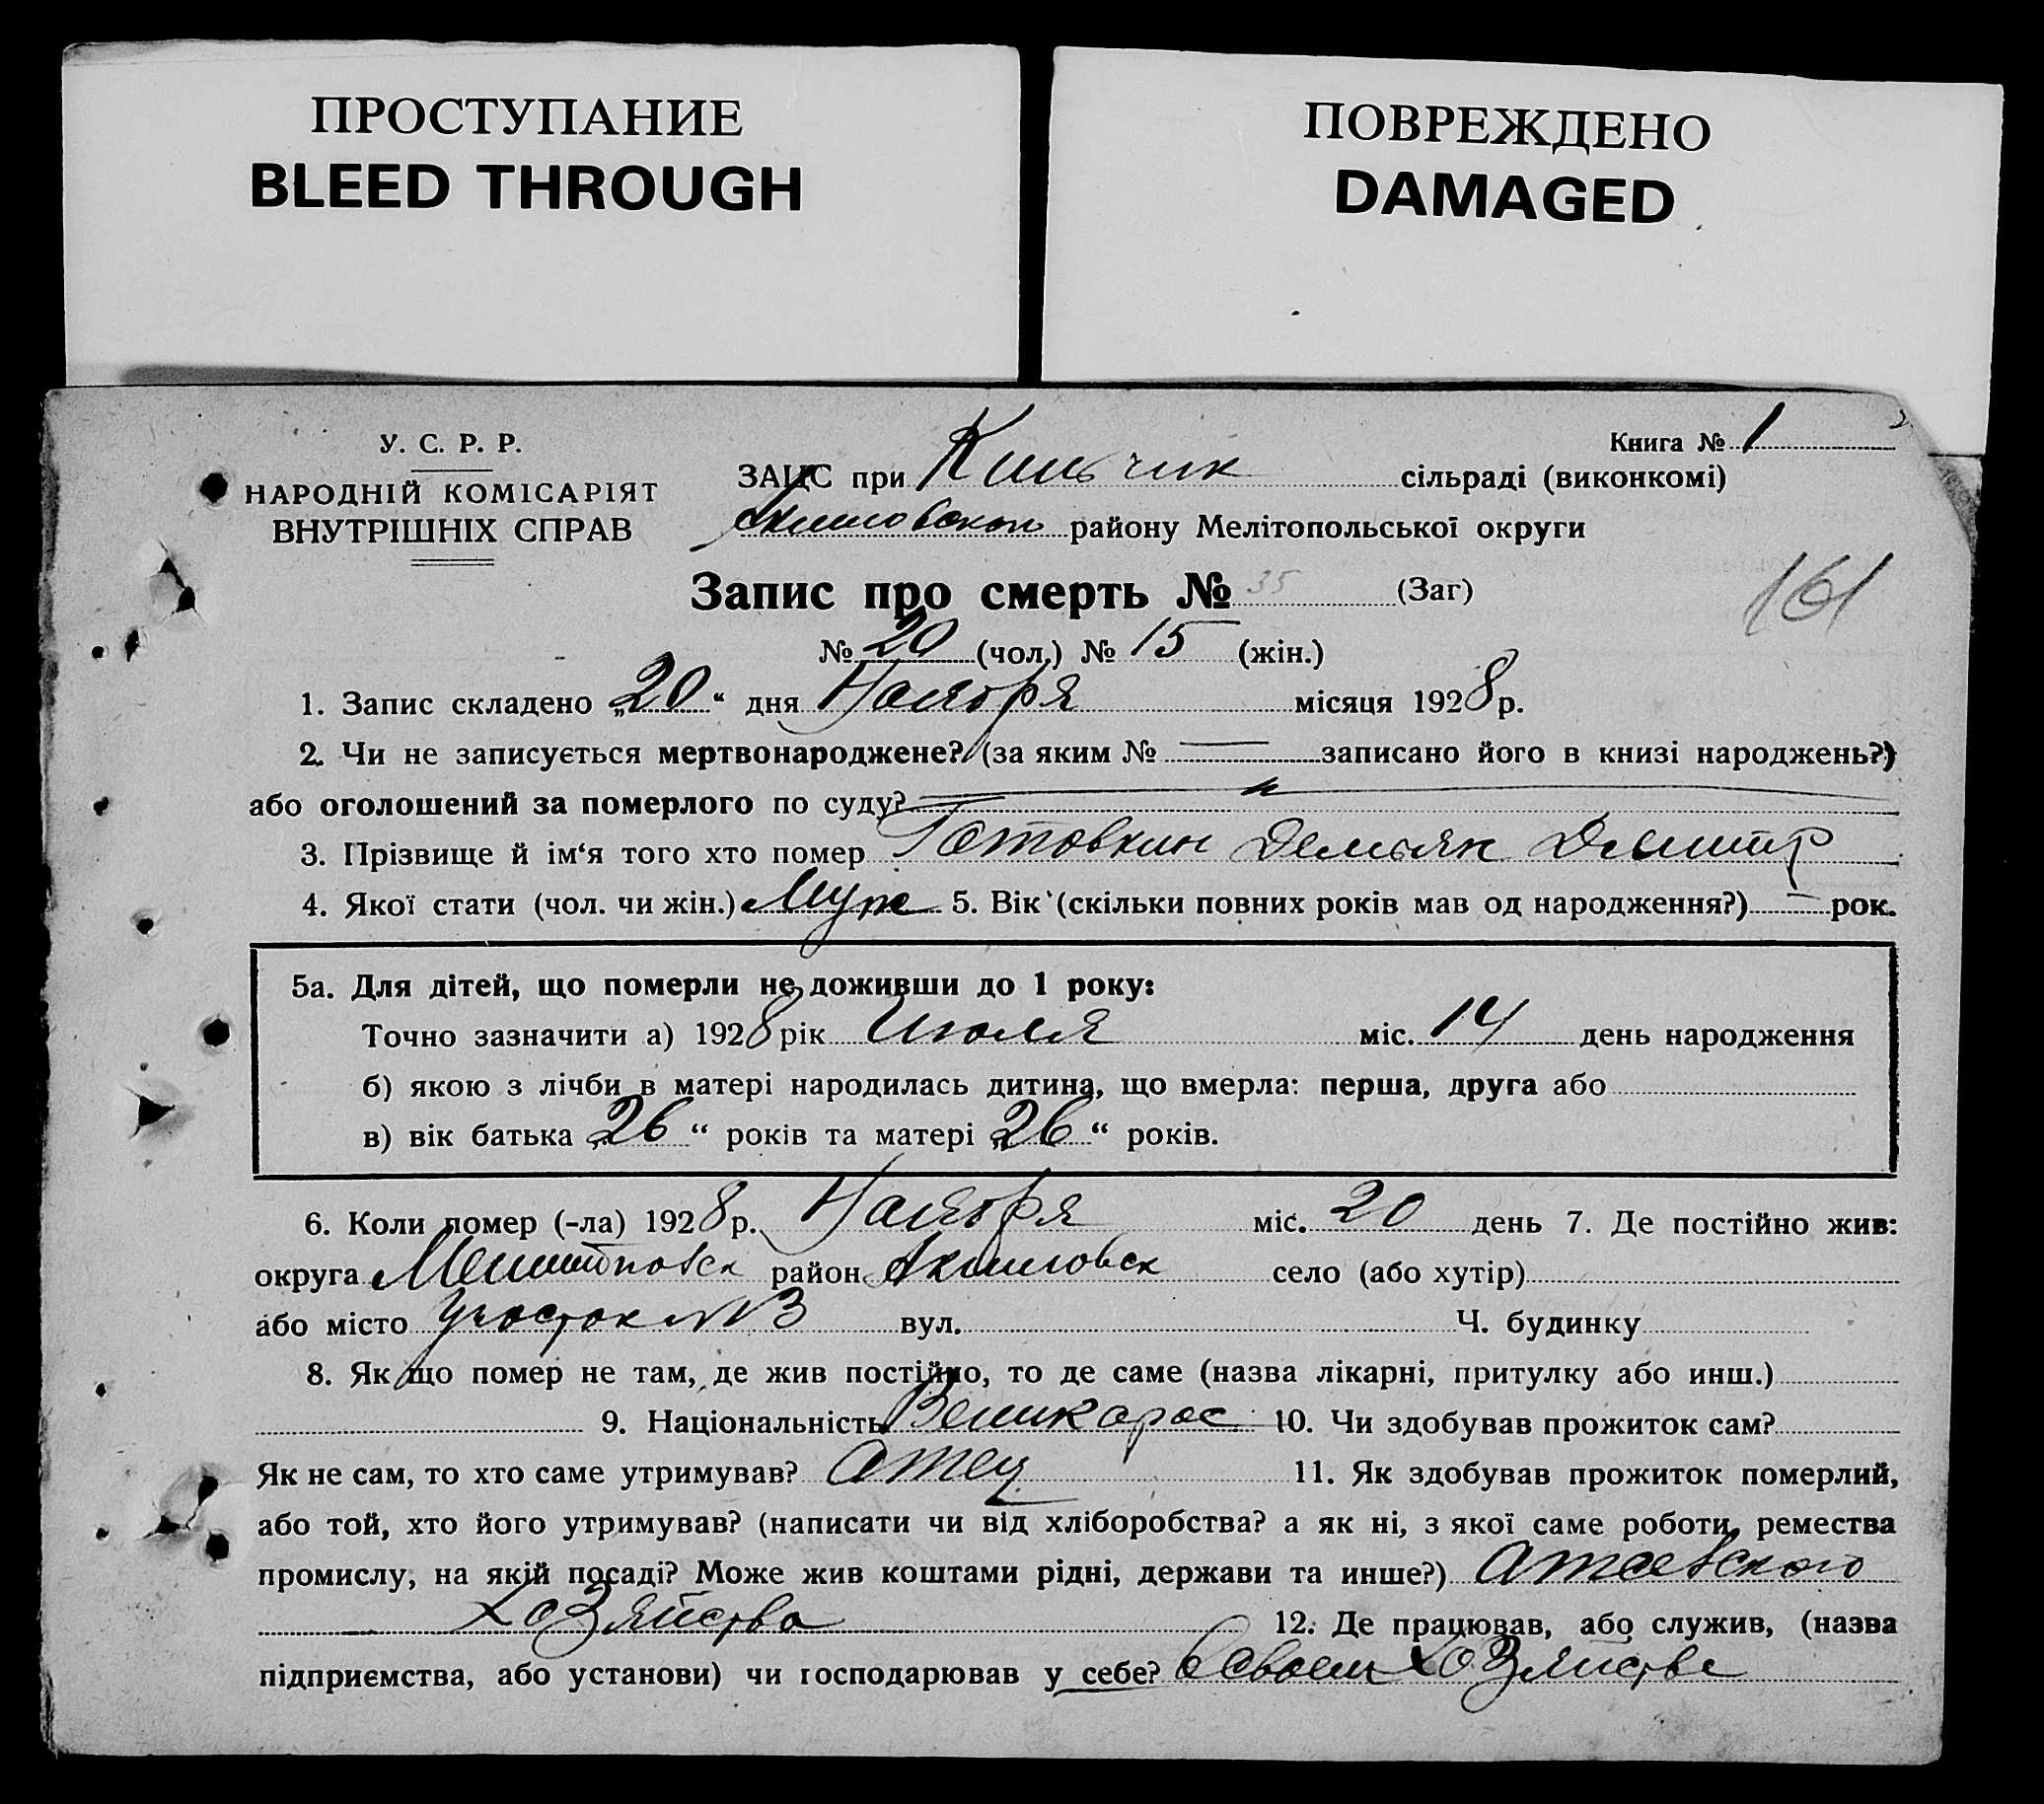 ПРОСТУПАНИЕ
BLEED THROUGH
ПОВРЕЖДЕНО
DAMAGED
У. С. Р. Р.
НАРОДНІЙ КОМІСАРІЯТ
ВНУТРІШНІХ СПРАВ
Книга № 1
ЗАЦС при Кильчик сільраді (виконкомі)
району Мелітопольської округи
Запис про смерть № 35 (Заг)
161
№ 20 (чол.) № 15 (жін.)
1. Запис складено „20“ дня Наября місяця 1928 р.
2. Чи не записується мертвонароджене? (за яким № — записано його в книзі народжень?)
або оголошений за померлого по суду?
3. Прізвище й ім‘я того хто помер Готовкин Демьян Дмитр
4. Якої стати (чол. чи жін.) Муж 5. Вік (скільки повних років мав од народження?) — рок.
5а. Для дітей, що померли не доживши до 1 року:
Точно зазначити а) 1928 рік Июля міс. 14 день народження
б) якою з лічби в матері народилась дитина, що вмерла: перша, друга або
в) вік батька „26“ років та матері „26“ років.
6. Коли помер (-ла) 1928 р. Наября міс. 20 день 7. Де постійно жив:
округа район Акимовск село (або хутір)
або місто Участок №3 вул. Ч. будинку
8. Як що помер не там, де жив постійно, то де саме (назва лікарні, притулку або инш.)
9. Національність Великорос. 10. Чи здобував прожиток сам?
Як не сам, то хто саме утримував? Отец 11. Як здобував прожиток померлий,
або той, хто його утримував? (написати чи від хліборобства? а як ні, з якої саме роботи, ремества
промислу, на якій посаді? Може жив коштами рідні, держави та инше?)
Хозяйства 12. Де працював, або служив, (назва
підприємства, або установи) чи господарював у себе? в своем Хозяйстве